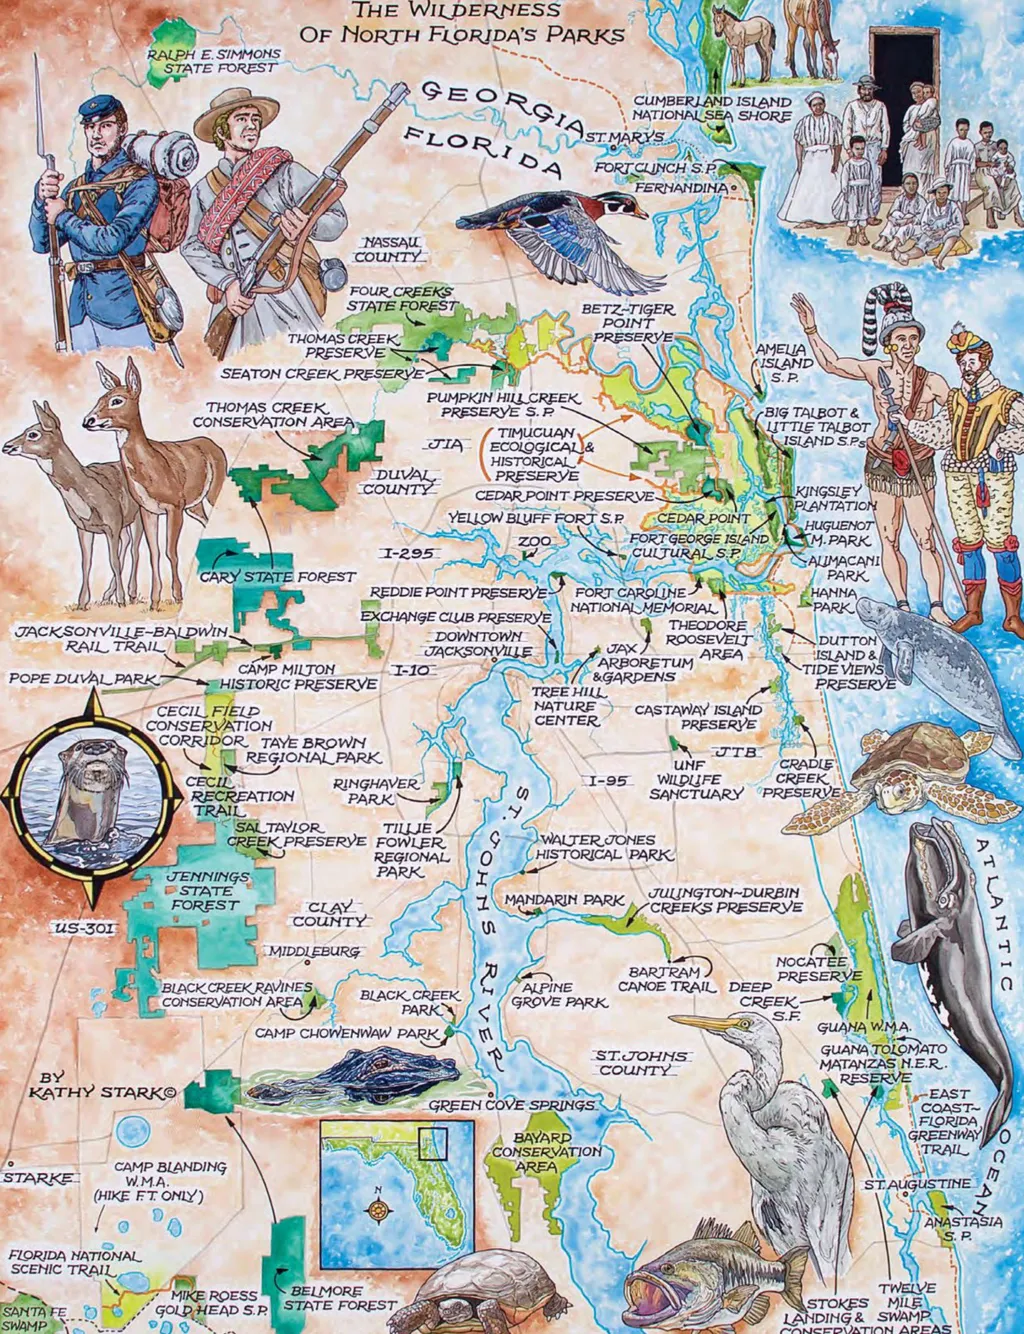 The Wilderness
Of North Florida's Parks
Ralph E. Simmons
State Forest
Georgia
Florida
Cumberland Island
National Sea Shore
St. Marys
Fort Clinch S.P.
Fernandina
US
Nassau
County
Four Creeks
State Forest
Betz-Tiger
Point
Preserve
Thomas Creek
Preserve
Seaton Creek Preserve
Amelia
Island
S.P.
Pumpkin Hill Creek
Preserve S.P.
Thomas Creek
Conservation Area
Big Talbot &
Little Talbot
Island S.P.s
JIA
Timucuan
Ecological &
Historical
Preserve
Duval
County
Cedar Point Preserve
Kingsley
Plantation
Yellow Bluff Fort S.P.
Cedar Point
Huguenot
M. Park
I-295
Zoo
Fort George Island
Cultural S.P.
Alimacani
Park
Cary State Forest
Reddie Point Preserve
Fort Caroline
National Memorial
Hanna
Park
Exchange Club Preserve
Theodore
Roosevelt
Area
Jacksonville-Baldwin
Rail Trail
Downtown
Jacksonville
Jax
Arboretum
& Gardens
Dutton
Island &
Tide Views
Preserve
Pope Duval Park
Camp Milton
Historic Preserve
I-10
Tree Hill
Nature
Center
Castaway Island
Preserve
Cecil Field
Conservation
Corridor
Taye Brown
Regional Park
JTB
Cecil
Recreation
Trail
Ringhaver
Park
I-95
UNF
Wildlife
Sanctuary
Cradle
Creek
Preserve
Sal Taylor
Creek Preserve
Tillie
Fowler
Regional
Park
St. Johns River
Walter Jones
Historical Park
Atlantic Ocean
Jennings
State
Forest
Mandarin Park
Julington-Durbin
Creeks Preserve
US-301
Clay
County
Middleburg
Nocatee
Preserve
Bartram
Canoe Trail
Black Creek Ravines
Conservation Area
Black Creek
Park
Alpine
Grove Park
Deep
Creek
S.F.
Camp Chowenwaw Park
Guana W.M.A.
St. Johns
County
Guana Tolomato
Matanzas N.E.R.
Reserve
By
Kathy Stark©
Green Cove Springs
East
Coast-
Florida
Greenway
Trail
Bayard
Conservation
Area
Starke
Camp Blanding
W.M.A.
(Hike F.T. Only)
N
St. Augustine
Anastasia
S.P.
Florida National
Scenic Trail
Mike Roess
Gold Head S.P.
Belmore
State Forest
Santa Fe
Swamp
Stokes
Landing &
Conservation Areas
Twelve
Mile
Swamp